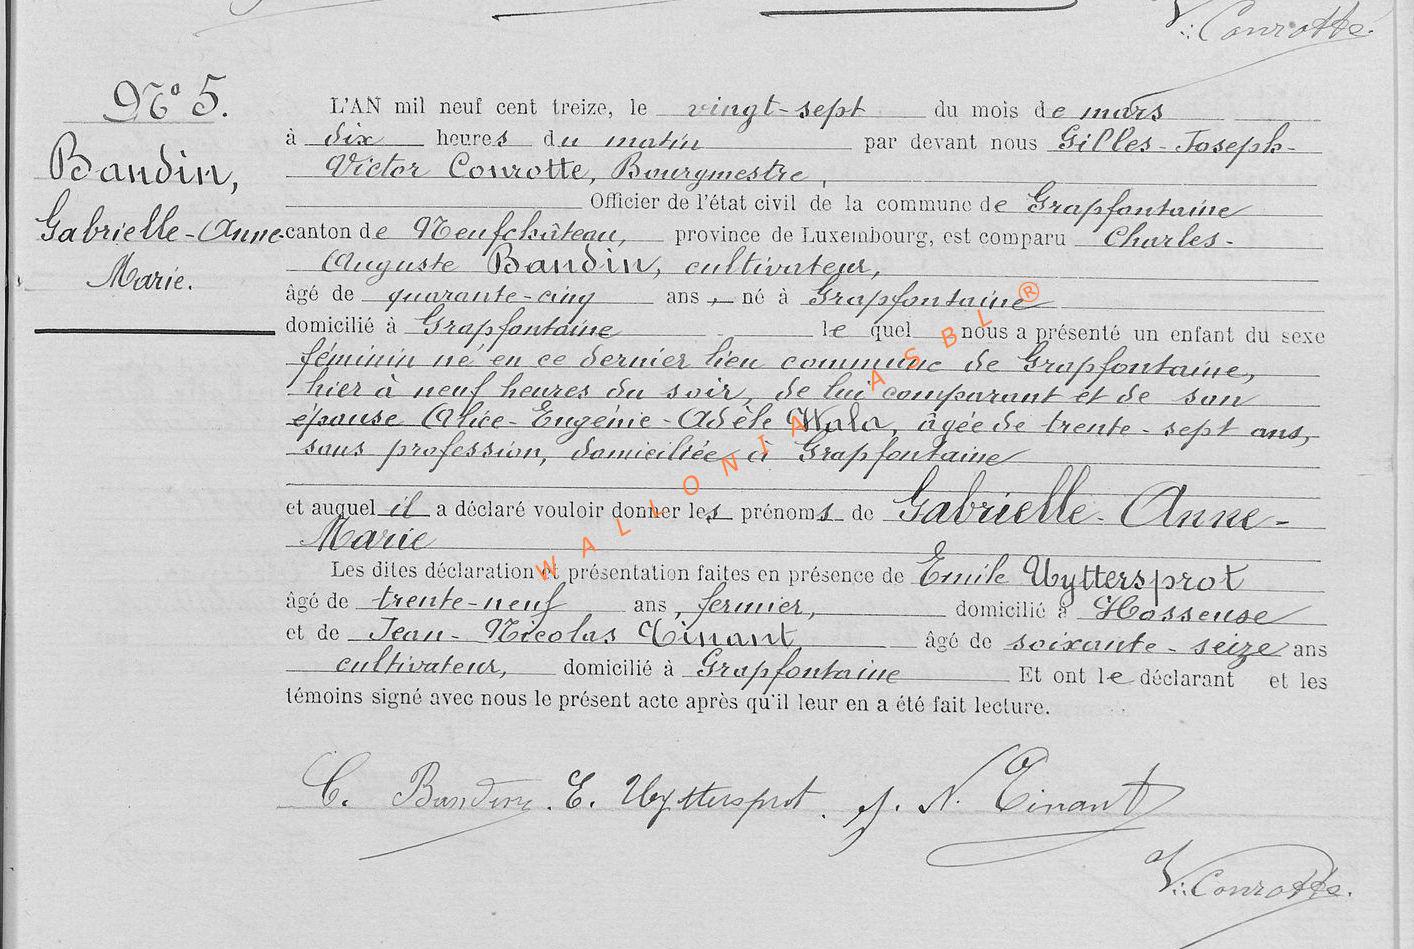 V: Conrotte.
Nº 5.
Baudin,
Gabrielle-Anne-
Marie.
L'AN mil neuf cent treize, le vingt-sept du mois de mars
à dix heures du matin par devant nous Gilles-Joseph-
Victor Conrotte, Bourgmestre,
Officier de l'état civil de la commune de Grapfontaine
canton de Neufchâteau, province de Luxembourg, est comparu Charles-
Auguste Baudin, cultivateur,
âgé de quarante-cinq ans, né à Grapfontaine
domicilié à Grapfontaine le quel nous a présenté un enfant du sexe
féminin né en ce dernier lieu commune de Grapfontaine,
hier à neuf heures du soir, de lui comparant et de son
épouse Alice-Eugénie-Adèle Wala, âgée de trente-sept ans,
sans profession, domiciliée à Grapfontaine
et auquel il a déclaré vouloir donner les prénoms de Gabrielle-Anne-
Marie
Les dites déclaration et présentation faites en présence de Emile Uyttersprot
âgé de trente-neuf ans, fermier, domicilié à Hosseuse
et de Jean-Nicolas Tinant âgé de soixante-seize ans
cultivateur, domicilié à Grapfontaine Et ont le déclarant et les
témoins signé avec nous le présent acte après qu'il leur en a été fait lecture.
C. Baudin. E. Uyttersprot. J. N. Tinant
V: Conrotte.
WALLONIA ASBL ®